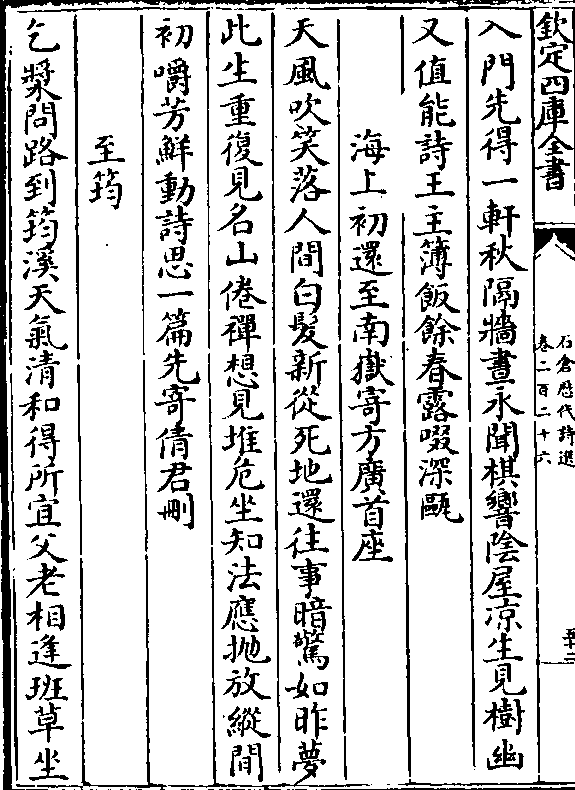 欽定四庫全書
石倉歷代詩選
卷二百二十六
入門先得一軒秋隔牆晝永聞棋響陰屋凉生見樹幽
又值能詩王主簿飯餘春露啜深甌
海上初還至南嶽寄方廣首座
天風吹笑落人間白髮新從死地還往事暗驚如昨夢
此生重復見名山倦禪想見堆危坐知法應抛放縱閒
初嚼芳鮮動詩思一篇先寄倩君刪
至筠
乞漿問路到筠溪天氣清和得所宜父老相逢班草坐